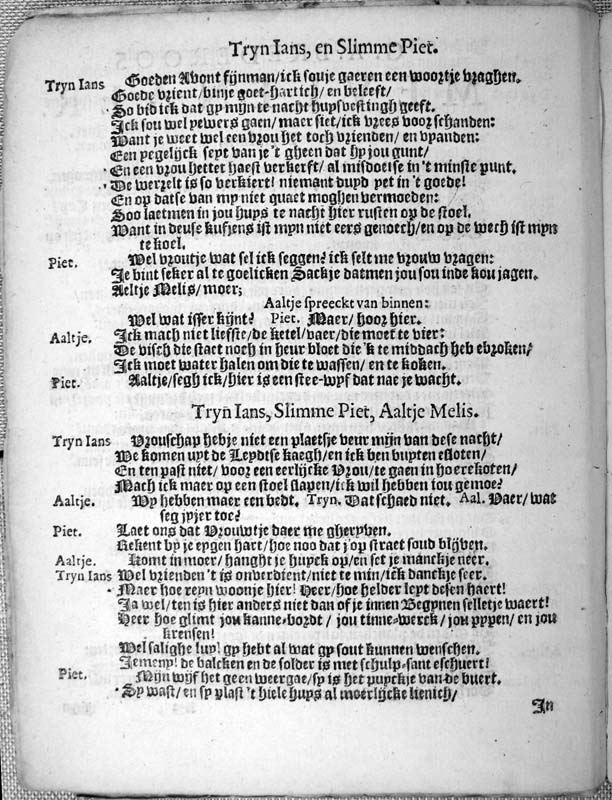 Tryn Ians, en Slimme Piet.
Tryn Ians Goeden Avont fijnman/ick souje gaeren een woortje vraghen.
Goede vrient/binje goet-hartich/ en beleeft/
So bid ick dat gy mijn te nacht huysvestingh geeft.
Ick sou wel yewers gaen/ maer siet/ick vrees voor schanden:
Want je weet wel een vrou het toch vrienden/ en vyanden:
Een yegelijck seyt van je 't gheen dat hy jou gunt/
En een vrou hetter haest verkerft/ al misdoetse in 't minste punt.
De werrelt is so verkiert! niemant duyd yet in 't goede!
En op datse van my niet quaet moghen vermoeden:
Soo laetmen in jou huys te nacht hier rusten op de stoel.
Want in deuse kussens ist mijn niet eers genoech/en op de wech ist myn
te koel.
Piet. Wel vroutje wat sel ick seggen? ick selt me vrouw vragen:
Je bint seker al te goelicken Sackje datmen jou sou inde kou jagen.
Aeltje Melis/ moer;
Aaltje spreeckt van binnen:
Wel wat isser kijnt? Piet. Maer/ hoor hier.
Aaltje. Ick mach niet liefste/de ketel/vaer/die moet te vier:
De visch die staet noch in heur bloet die 'k te middach heb ebroken/
Ick moet water halen om die te wassen/ en te koken.
Piet. Aaltje/segh ick/hier is een stee-wyf dat nae je wacht.
Tryn Ians, Slimme Piet, Aaltje Melis.
Tryn Ians Vrouschap hebje niet een plaetsje veur mijn van dese nacht/
We komen uyt de Leydtse kaegh/en ick ben buyten esloten/
En ten past niet/ voor een eerlijcke Vrou/te gaen in hoerekoten/
Mach ick maer op een stoel slapen/ick wil hebben jou gemoe?
Aaltje. Wy hebben maer een bedt. Tryn. Dat schaed niet. Aal. Vaer/wat
seg jyjer toe?
Piet. Laet ons dat Vrouwtje daer me gheryven.
Rekent by je eygen hart/hoe noo dat j'op straet soud blijven.
Aaltje. Komt in moer/ hanght je huyck op/en set je manckje neer.
Tryn Ians Wel vrienden 't is onverdient/niet te min/ick danckje seer.
Maer hoe reyn woonje hier! Heer/hoe helder leyt desen haert!
Ja wel/ten is hier anders niet dan of je innen Begynen selletje waert!
Heer hoe glimt jou kanne-bordt / jou tinne-werck/ jou pypen/ en jou
krensen!
Wel salighe luy! gy hebt al wat gy sout kunnen wenschen.
Jemeny! de balcken en de solder is met schulp-sant eschuert!
Piet. Mijn wijf het geen weergae/sy is het puyckje van de buert.
Sy wast/ en sy plast 't hiele huys al moerlijcke lienich/
In